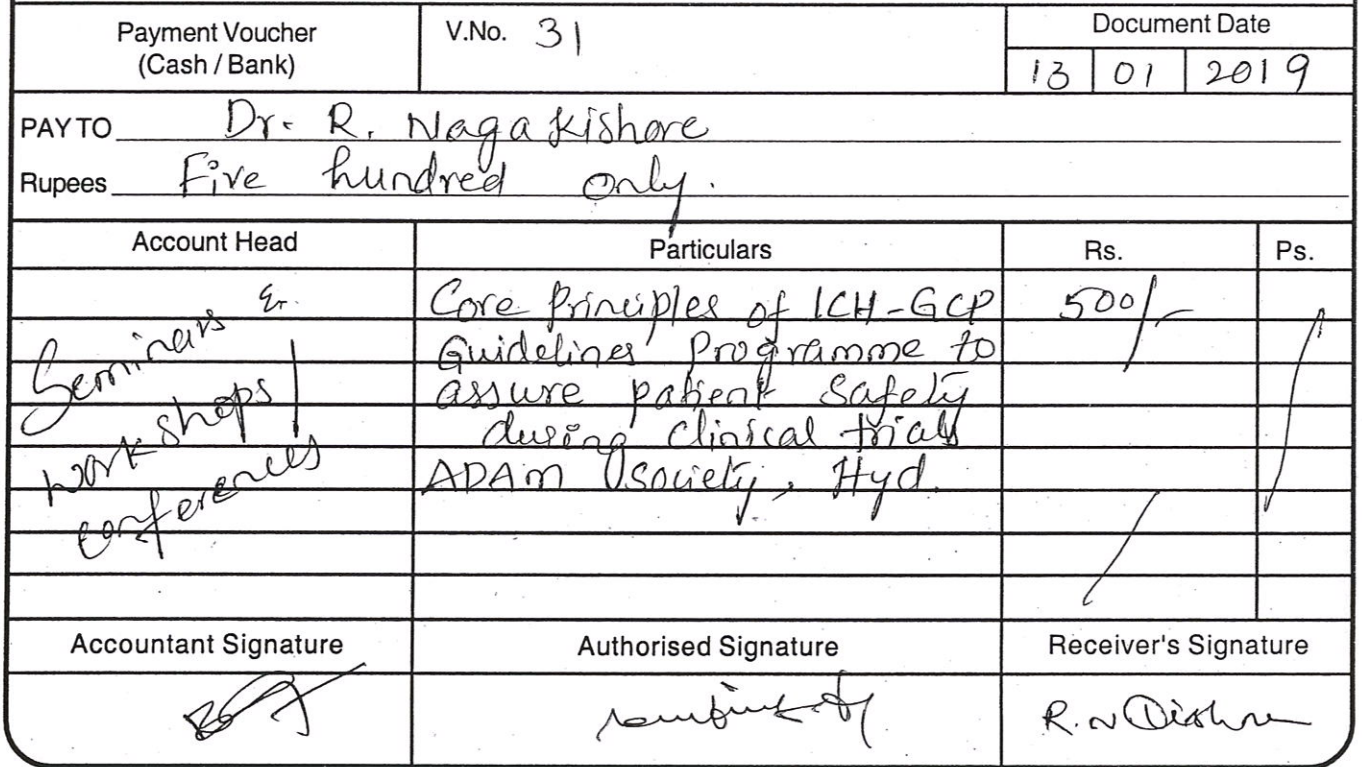 Payment Voucher
(Cash / Bank)
V.No. 31
Document Date
13 01 2019
PAY TO Dr. R. Naga Kishore
Rupees Five hundred only.
Account Head Particulars Rs. Ps.
Seminars &
work shops /
conferences
Core Principles of ICH-GCP 500/-
Guidelines Programme to
assure patient Safety
during clinical trials
ADAM Society, Hyd.
Accountant Signature Authorised Signature Receiver's Signature
R. N